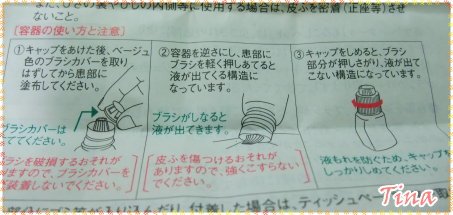 ないこと。
[容器の使い方と注意]
①キャップをあけた後、ベージュ
色のブラシカバーを取り
はずしてから患部に
塗布してください。
ブラシカバーは
てください。
ラシを破損するおそれが
りますので、ブラシカバーを
装着しないでください。
②容器を逆さにし、患部に
ブラシを軽く押しあてると
液が出てくる構造に
なっています。
ブラシがしなると
液が出てきます。
皮ふを傷つけるおそれが
ありますので、強くこすらない
でください。
③キャップをしめると、ブラシ
部分が押しさがり、液が出て
こない構造になっています。
液もれを防ぐため、キャップを
しっかりしめてください。
付着した場合は、ティッシュペーパー
Tina